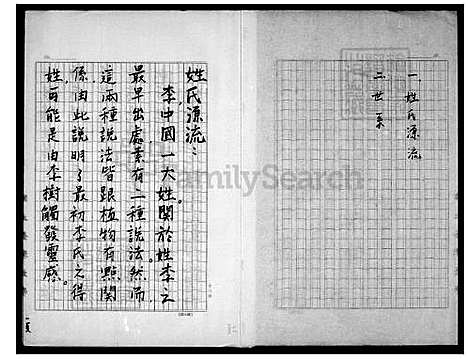 一、姓氏源流
二、世系
姓氏源流：
李，中國一大姓。關於姓李之
最早出處，素有二種說法。然而，
這兩種說法皆跟植物有點關
係，由此說明了最初李氏之得
姓可能是由李樹觸發靈感。
FamilySearch